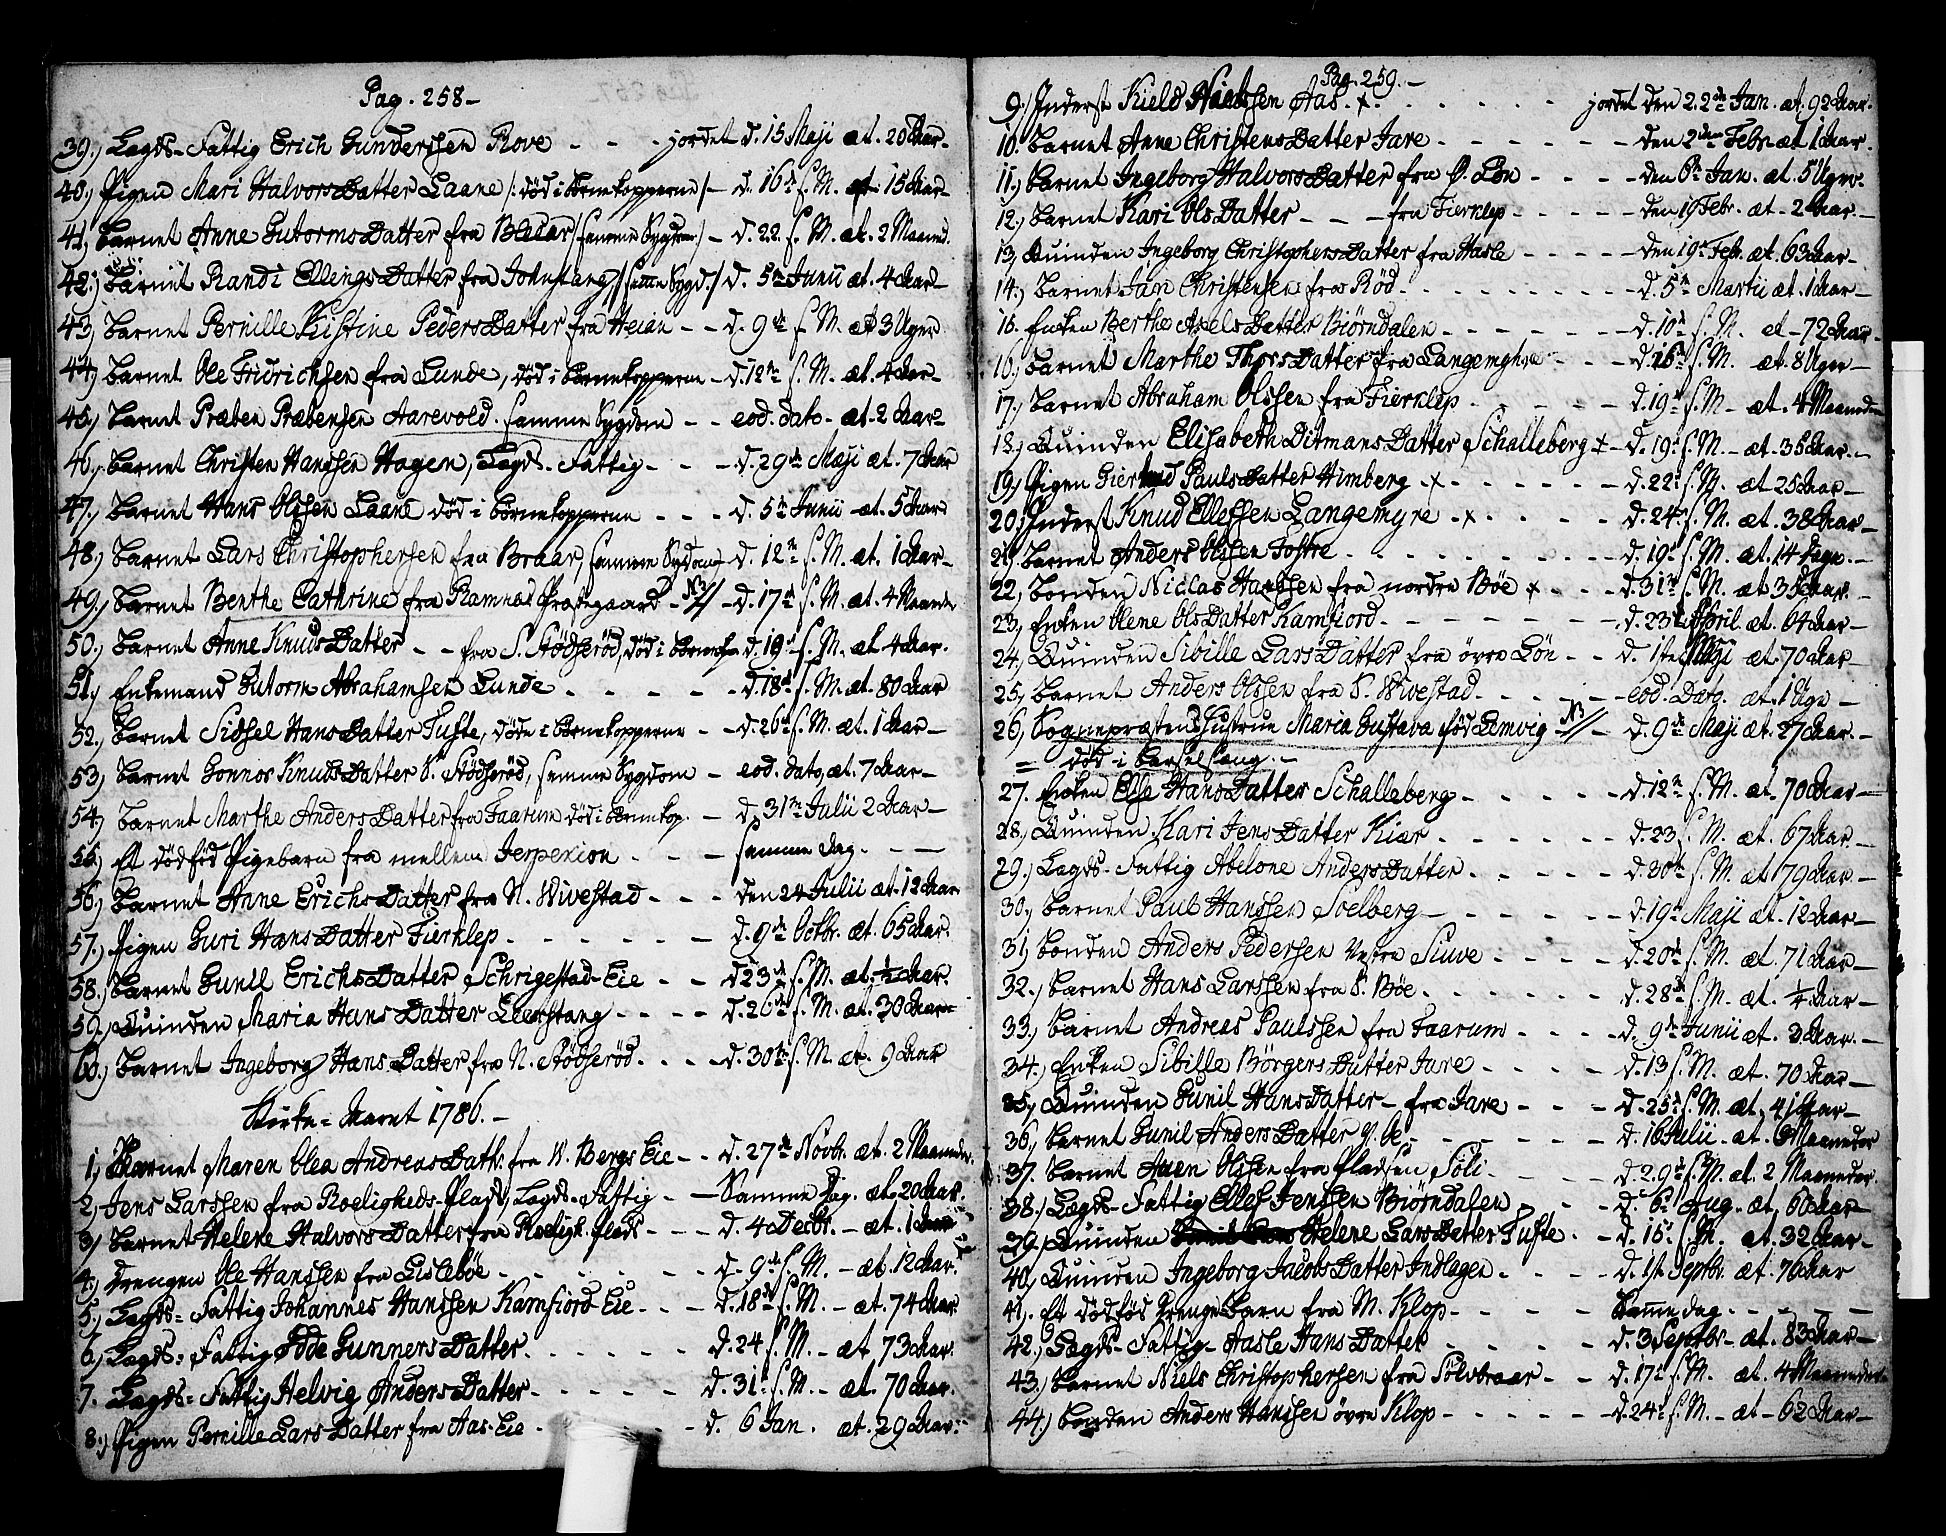 Pag. 258-
39.) Lagds-Fattig Erich Gunderssen Rove - - - jordet d. 15 Maji æt. 20 Aar-
40.) Pigen Mari HalvorsDatter Laane /: død i Børnekopperne /- d. 16d s. M. æt. 15 Aar-
41.) Barnet Anne GutormsDatter fra Braar /samme Sygdom/ - d. 22. s. M. æt. 2 Maaned.
42.) Barnet Randi EllingsDatter fra /samme Sygd./ d. 5te Junii æt. 4 Aar-
43.) Barnet Pernille Kistine PedersDatter fra Heian - - d. 9de s. M. æt 3 Uger
44.) Barnet Ole Fridrichsen fra Lunde, død i Børnekopperne - d. 12te s. M. æt. 4 Aar-
45.) Barnet Præben Præbensen Aarevold. samme Sygdom - - eod. dato - æt. 2 Aar-
46.) Barnet Christen Hanssen Hagen, Lagds-Fattig - - - d. 29de Maji æt. 7 Aar
47.) Barnet Hans Olssen Laane død i Børnekopperne - - - d. 5te Junii - æt. 5 Aar
48.) Barnet Lars Christophersen fra Braar, samme Sygdom - d. 12te s. M. æt. 1 Aar-
49.) Barnet Benthe Cathrine fra Ramnæs Præstegaard - NB // - d. 17de s. M. æt. 4 Maaneder
50.) Barnet Anne KnudsDatter - - fra S. Stödseröd, död i Börnek. d. 19 s. M. æt. 4 Aar.
51.) Enkemand Gutorm Abrahamsen Lunde - - - - - d. 18d s. M. æt. 80 Aar
52.) Barnet Sidsel HansDatter Tufte, döde i Börnekopperne - - d. 26d s. M. æt. 1 Aar-
53.) Barnet Gonnor KnudsDatter S. Stödseröd, samme Sygdom - eod. dato, æt. 7 Aar-
54.) Barnet Marthe AndersDatter fra Faarum död i Börnekop. - d. 31te Julii 2 Aar-
55.) Et dödföd Pigebarn fra mellem Jerpekion - - - samme dag. - -
56.) Barnet Anne ErichsDatter fra N. Wivestad - - - den 24 Julii æt. 12 Aar
57.) Pigen Guri HansDatter Fierklep - - - - - - d. 9de Octbr. æt. 65 Aar.
58.) Barnet Gunil ErichsDatter Schrigestad-Eie - - d 23d s. M. æt. ½ Aar.
59.) Quinden Maria HansDatter Leerstang - - - - d. 26de s. M. æt. 30 Aar-
60.) Barnet Ingeborg HansDatter fra N. Stödseröd. - - - d. 30te s. M. æt. 9 Aar
Kirke-Aaret 1786.-
1.) Barnet Maren Olea AndreasDatt. fra W. Bergs Eie - - d. 27de Novbr. æt. 2 Maaneder.
2.) Jens Larssen fra Roeligheds-Plads, Lagds-Fattig - - Samme Dag. æt. 20 Aar.
3.) Barnet Helene HalvorsDatter fra Roeligh. plads - - - d. 4 Decbr. - æt. 1 Aar
4.) Drengen Ole Hanssen fra Lisleböe - - - - - - d. 9de s. M. - æt. 12 Aar.
5.) Lagds-Fattig Johannes Hanssen Kamfiord-Eie - - - d. 18de s. M. - æt. 74 Aar.
6.) Lagds-Fattig Odde GunnersDatter. - - - - - d. 24 s. M. - æt 73 Aar.
7. Lagds-Fattig Helvig AndersDatter - - - - - d. 31t s. M. - æt. 70 Aar.
8.) Pigen Pernille LarsDatter fra Aas-Eie - - - - d. 6 Jan. æt. 29 Aar.
Pag. 259.-
9.) Inderst Kield Nielssen Aas. x. - - - - - - jordet den 22de Jan. æt. 92 Aar.
10. Barnet Anne ChristensDatter Jare - - - - - - den 2den Febr. æt 1 Aar.
11.) Barnet Ingeborg HalvorsDatter fra Ö. Lön - - - - den 6te Jan. æt. 5 Uger.
12.) Barnet Kari OlsDatter - - - fra Fierklep - - - - - den 19 Febr. æt - 2 Aar.-
13.) Quinden Ingeborg ChristophersDatter fra Hasle - - - - - den 19de Feb. æt. 63 Aar-
14.) Barnet Jan Christensen fra Röd. - - - - - - - d. 5te Martii æt. 1 Aar-
15. Enken Berthe AxelsDatter Biörndalen - - - - - - d. 10d s. M. æt - 72 Aar-
16.) Barnet Marthe ThorsDatter fra Langemyhra - - - d. 16de s. M. æt. 8 Uger-
17.) Barnet Abraham Olssen fra Fierklep - - - - - d. 19de s. M - æt. 4 Maaneder
18.) Quinden Elisabeth DitmansDatter Schalleberg x - d. 19d s. M. - æt. 35 Aar.-
19.) Pigen Giertrud PaulsDatter Himberg - x - - - - - - d. 22d s. M. æt 25 Aar-
20.) Inderst Knud Ellefssen Langemyre - x - - - - d. 24d s. M. æt. 38 Aar-
21.) Barnet Anders Olssen Fostre. - - - - - - - d. 19d s. M. æt. 14 Dage.-
22.) Bonden Niclas Hanssen fra nordre Böe x - - - d. 31te s. M. æt. 35 Aar.
23.) Enken Olene OlsDatter Kamfiord - - - - - - - d. 23d April æt. 64 Aar-
24.) Quinden Sibille LarsDatter fra övre Lön - - d. 1ste Maji æt. 70 Aar-
25.) Barnet Anders Olssen fra S. Wivestad - - - - eod. Dag. æt. 1 Uge-
26.) Sognepræstens Hustrue Maria Gustava föd Lemvig NB // - d. 9de Maji æt. 27 Aar.-
= död i Barselsæng.-
27. Enken Else HansDatter Schalleberg - - - - - d. 12te s. M. æt. 70 Aar-
28.) Quinden Kari JensDatter Kiær - - - - - - - d. 23 s. M. æt. 67 Aar-
29.) Lagds-Fattig Abelone AndersDatter - - - - - d. 30te s. M. æt 79 Aar-
30.) Barnet Paul Hanssen Soelberg - - - - - - d. 19de Maji æt. 12 Aar-
31.) Bonden Anders Pedersen Vestre Siuve - - - - d. 20de s. M. æt. 71 Aar-
32.) Barnet Hans Larssen fra S. Böe. - - - - - - d. 28de s. M. æt. ¼ Aar-
33.) Barnet Andreas Paulssen fra Faarum - - - - d. 9de Junii æt. 3 Aar.-
34.) Enken Sibille BörgersDatter Jare - - - - - d. 13 s. M. æt. 70 Aar-
35.) Quinden Gunil HansDatter - fra Jare - - - - d. 25d s. M. æt. 41 Aar-
36.) Barnet Gunil AndersDatter - - - - - - d. 16 Julii - æt. 6 Maaneder
37. Barnet Auen Olssen fra Pladsen Söli - - - - - d. 29d s. M. æt. 2 Maaneder.
38.) Lagds-Fattig Ellef Jenssen Biörndalen - - - d. 6te Aug. æt. 60 Aar-
39.) Quinden Helene LarsDatter Tufte - - d. 16d s. M. æt. 32 Aar-
40.) Quinden Ingeborg JacobsDatter Indlagen - - - - d. 1st Septbr. æt. 76 Aar
41.) Et dödföd Drenge Barn fra M. Klop - - - - - Samme dag - - - - -
42.) Lagds-Fattig - Aasle HansDatter - - - - - - d. 3 Septbr - æt. 83 Aar-
43.) Barnet Niels Christophersen fra Sölvbraar - - d. 17d s. M. æt. 4 Maaneder-
44.) Bonden Anders Hanssen övre Klop - - - - - - d. 24d s. M. - æt - 62 Aar-